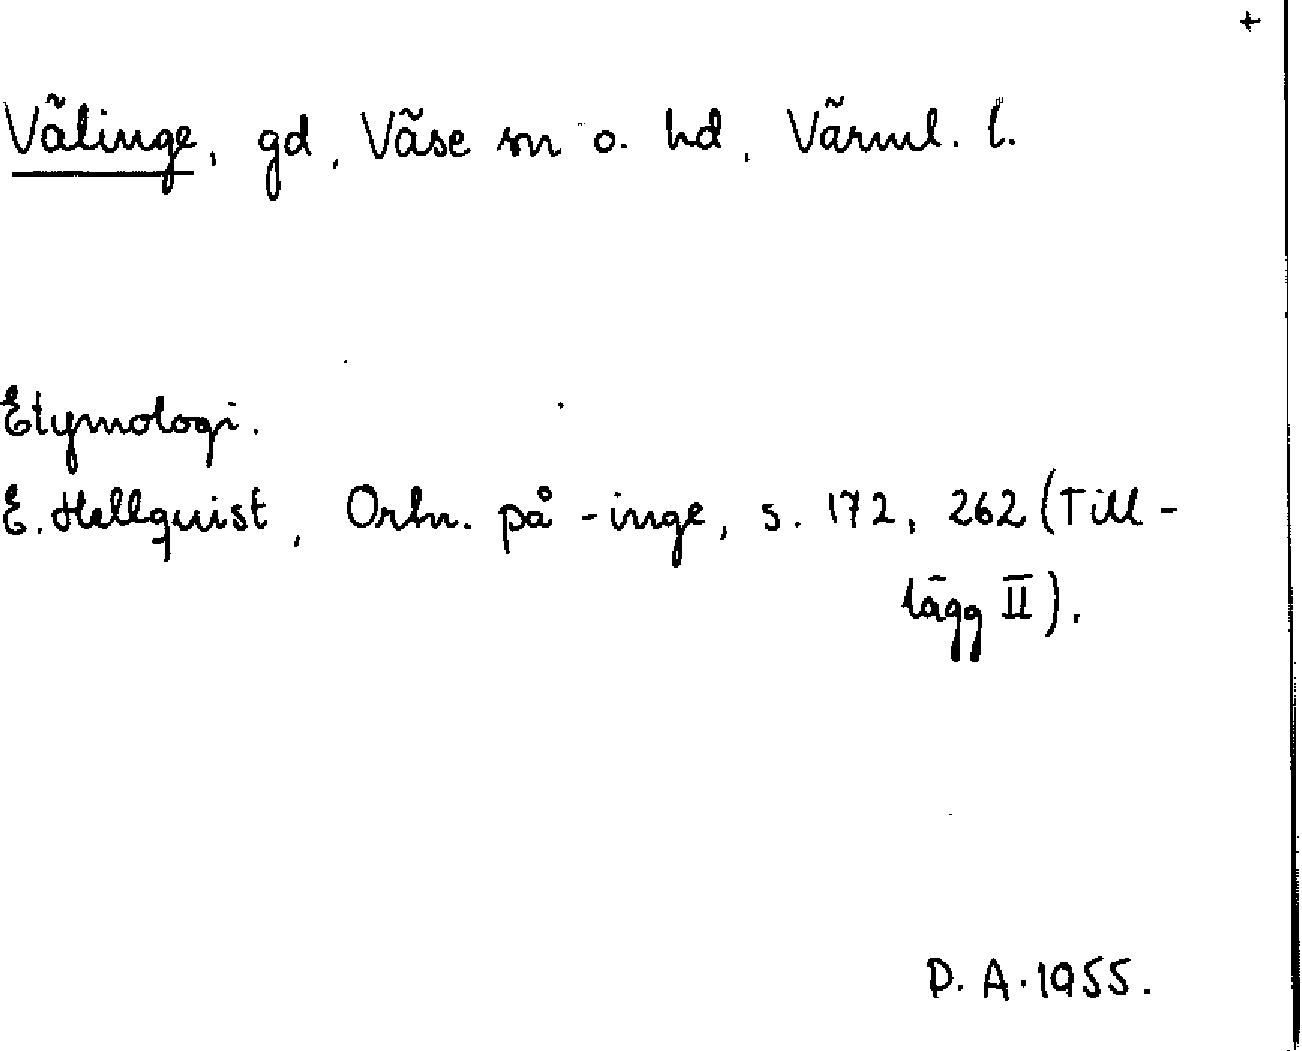 +
Välinge, gd, Väse sn o. hd, Värml. l.
Etymologi.
E. Hellquist, Ortn. på -inge, s. 172, 262 (Till-
lägg II).
D. A. 1955.